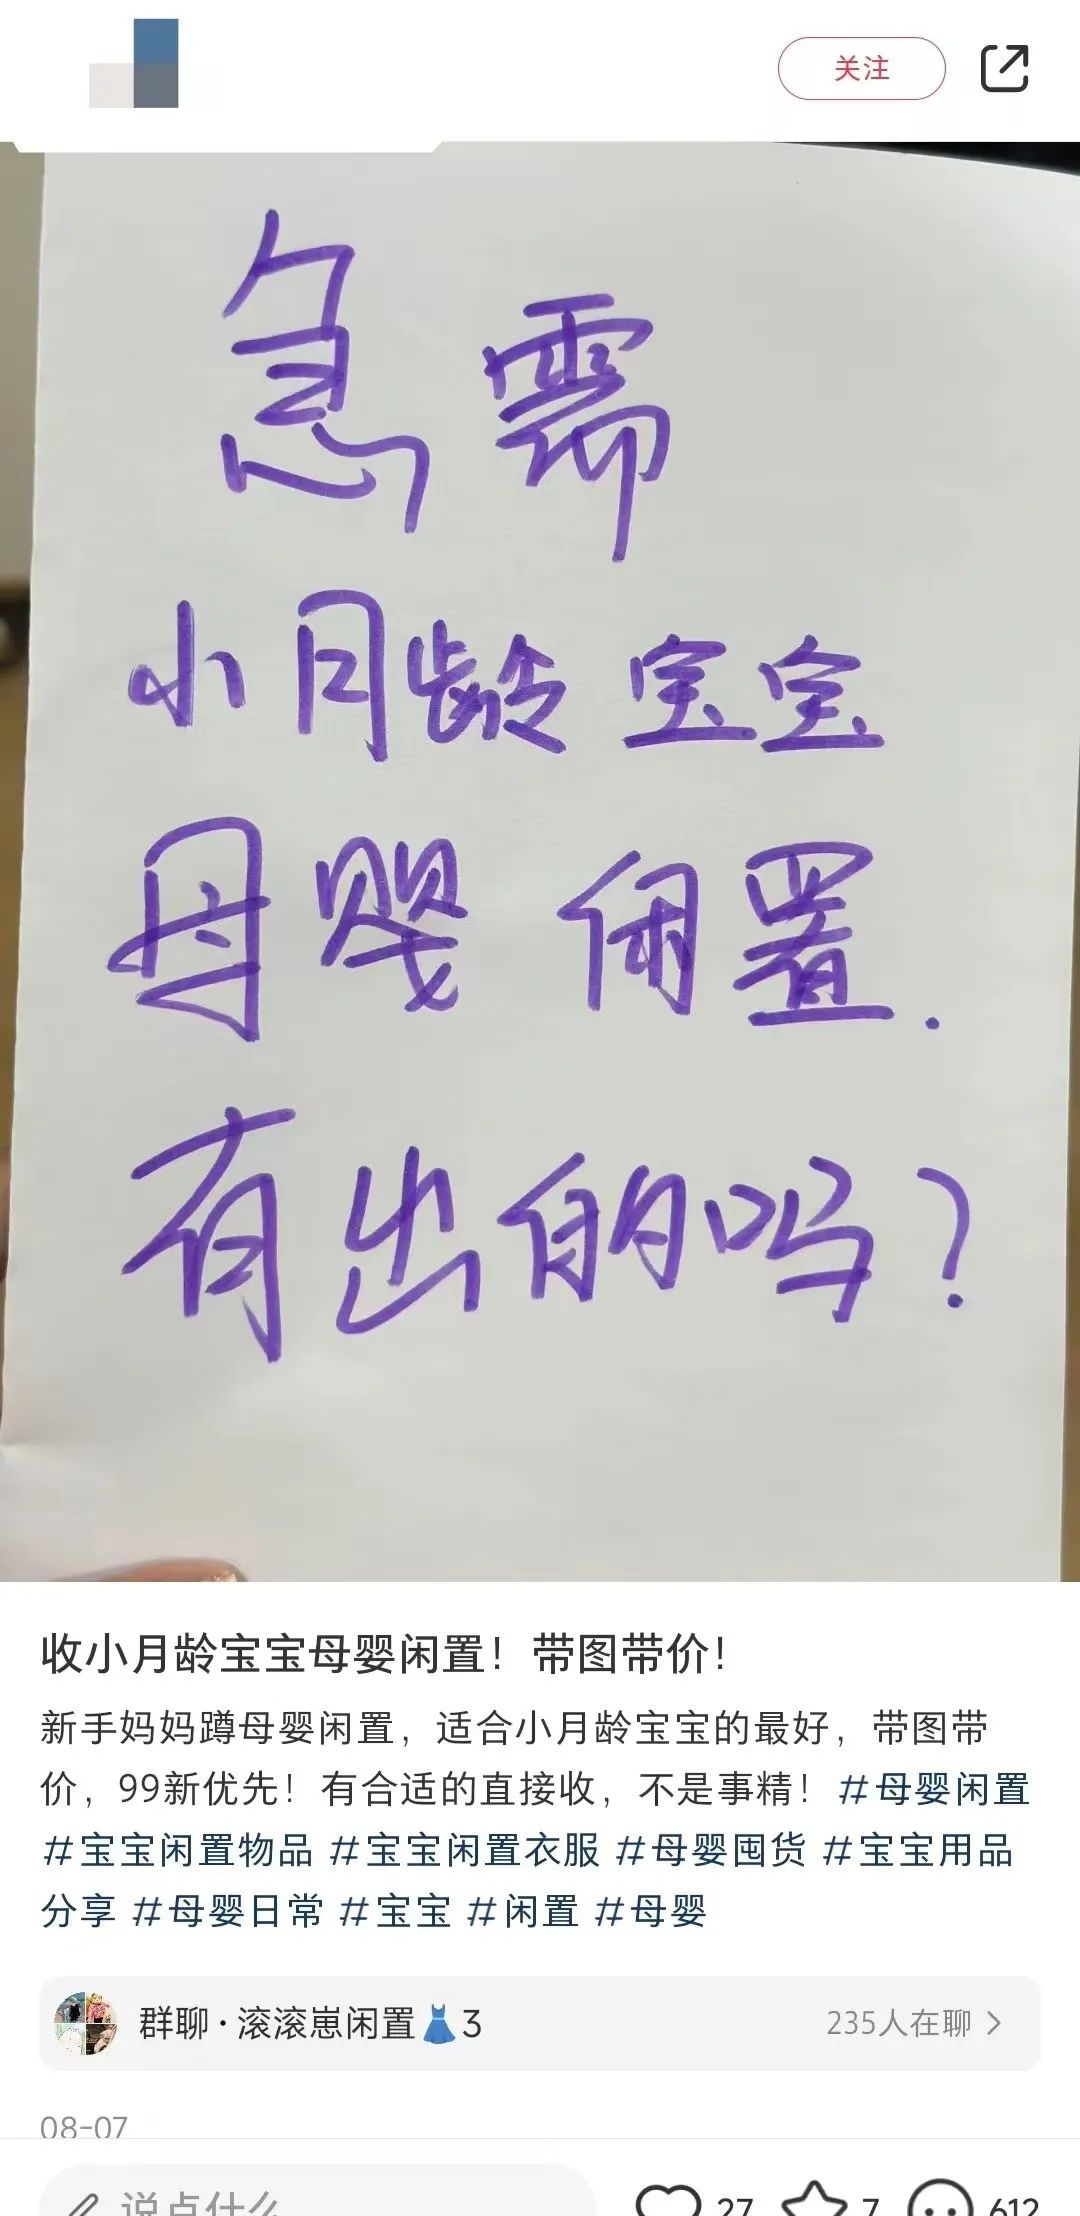 关注
急需
小月龄宝宝
母婴闲置.
有出的吗?
收小月龄宝宝母婴闲置！带图带价！
新手妈妈蹲母婴闲置，适合小月龄宝宝的最好，带图带
价，99新优先！有合适的直接收，不是事精！#母婴闲置
#宝宝闲置物品 #宝宝闲置衣服 #母婴囤货 #宝宝用品
分享 #母婴日常 #宝宝 #闲置 #母婴
群聊·滚滚崽闲置👗3 235人在聊
08-07
说点什么 27 7 612